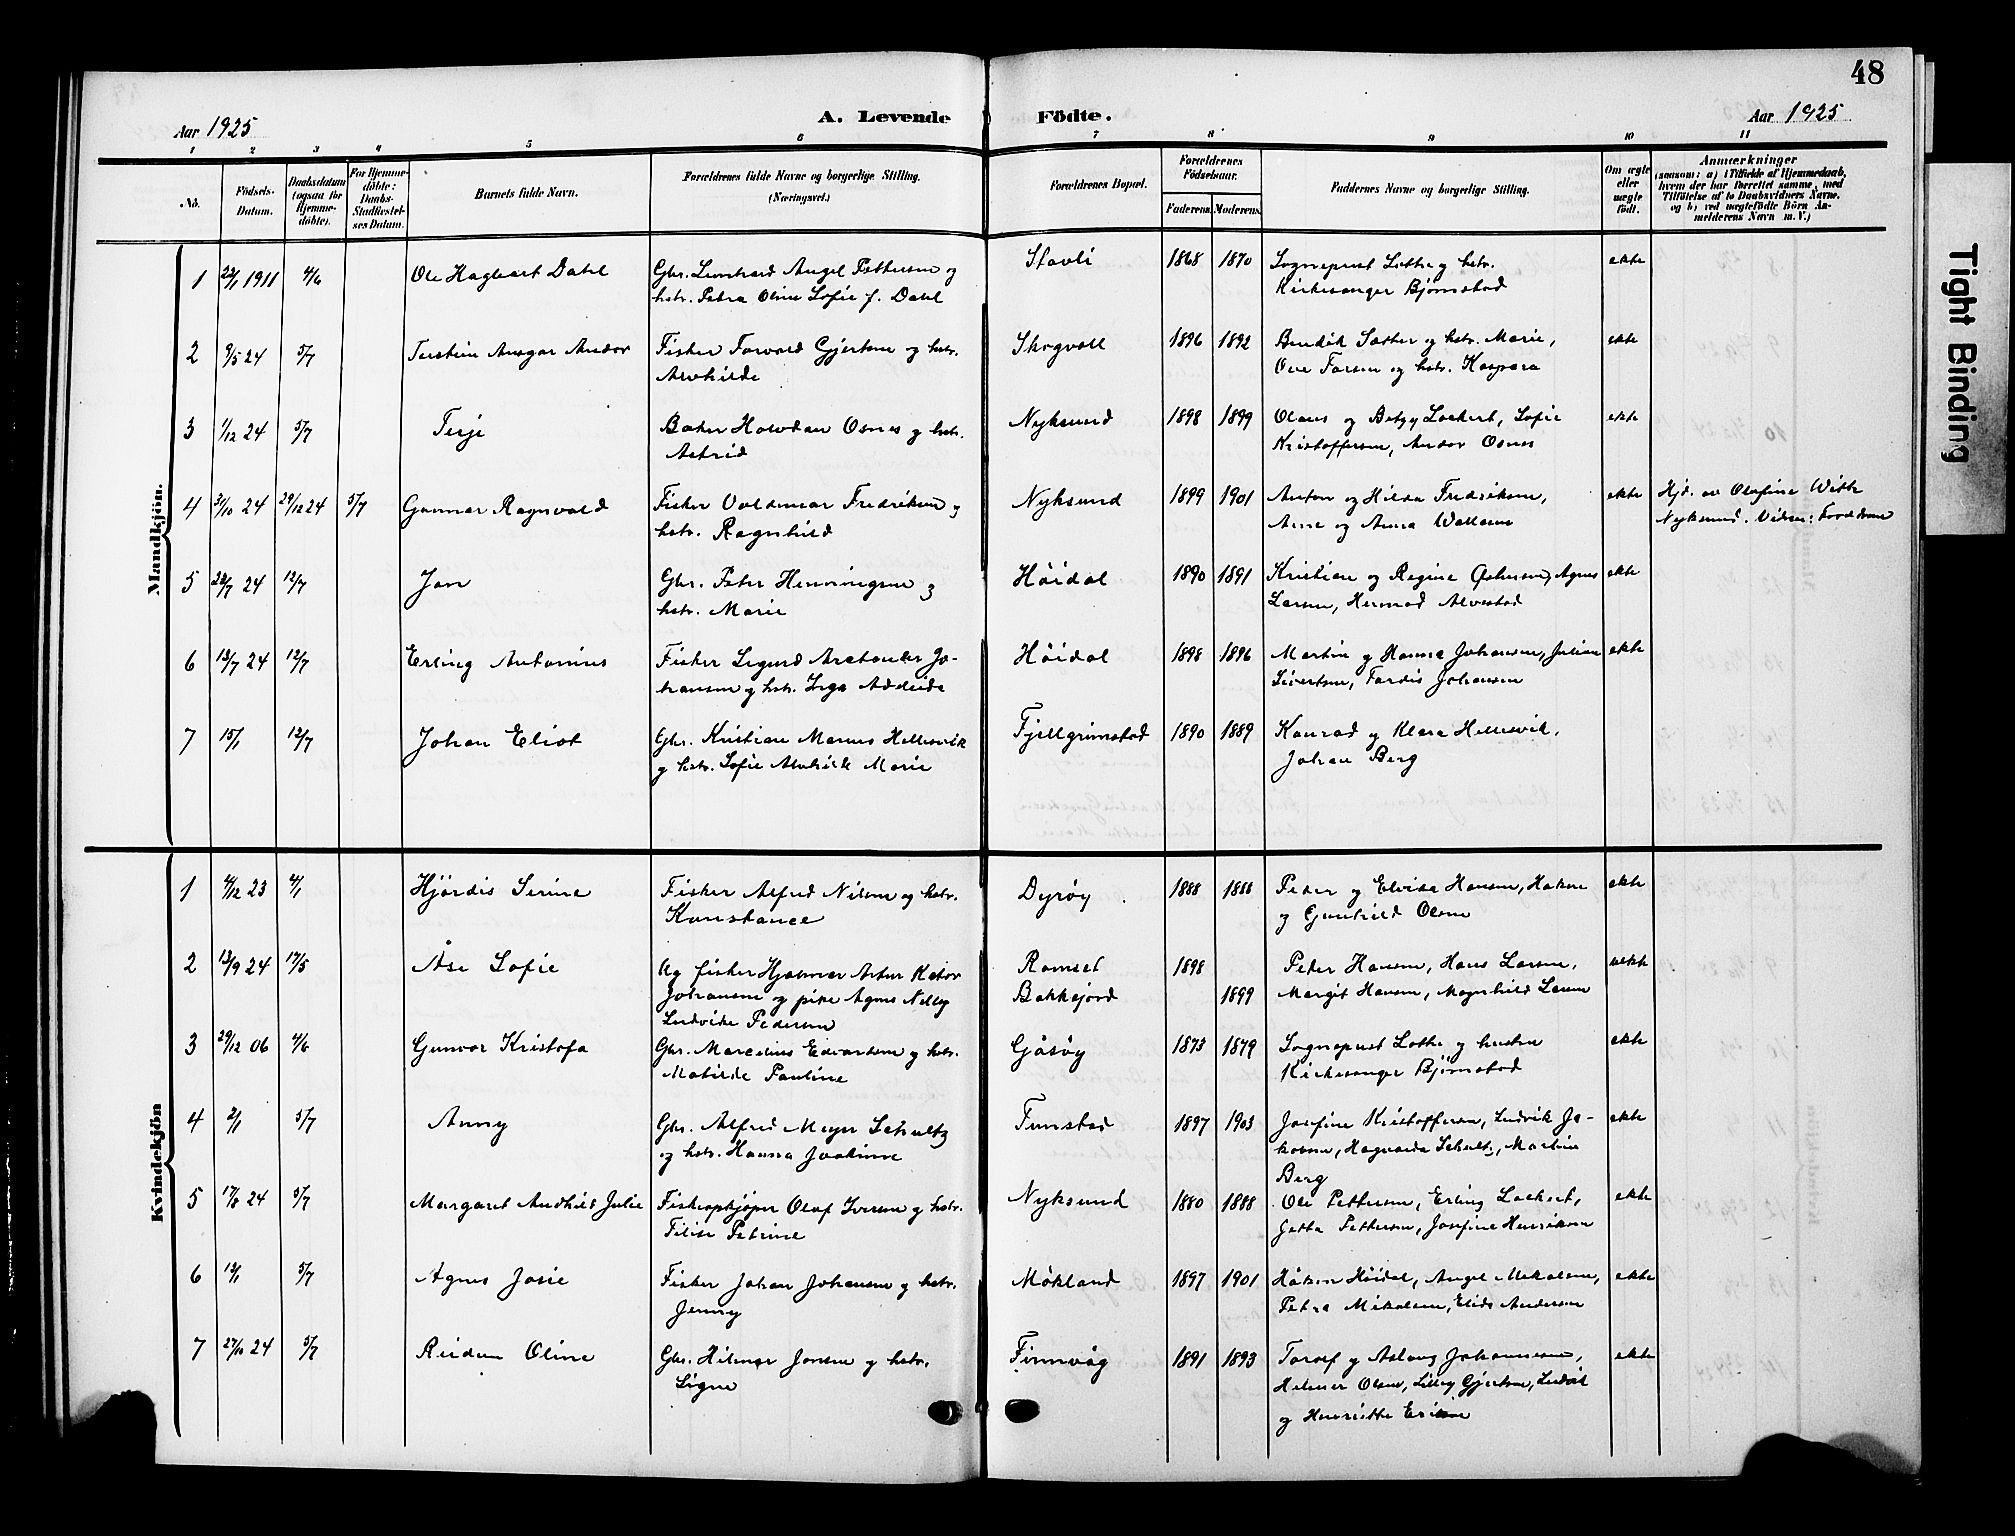 48
Aar 1925
A. Levende Födte.
Aar 1925
1 2 3 4 5 6 7 8 9 10 11
No.
Födsels-Datum.
Daabsdatum (ogsaa for Hjemmedöbte).
For Hjemmedöbte: Daabs-Stadfæstelses Datum.
Barnets fulde Navn.
Forældrenes fulde Navne og borgerlige Stilling. (Næringsvei.)
Forældrenes Bopæl.
Forældrenes Födselsaar.
Faderens. Moderens.
Faddernes Navne og borgerlige Stilling.
Om ægte eller uægte födt.
Anmærkninger
(saasom: a) i Tilfælde af Hjemmedaab, hvem der har forrettet samme, med Tilföielse af to Daabsvidners Navne. og b) ved uægtefödte Börn Anmelderens Navn m. V.)
Mandkjön.
1 22/1 1911 4/6 Ole Hagbart Dahl Gbr. Lenhard Angel Pettersen og Stavli 1868 1870 Sogneprest Lothe og hstr. ekte
hstr. Petra Oline Sofie f. Dahl Kirkesanger Bjørnstad
2 9/5 24 5/7 Torstein Ansgar Andor Fisker Torvald Gjertsen og hstr. Skogvoll 1896 1892 Bendik Sæther og hstr. Marie, ekte
Alvhilde Ove Torsen og hstr. Kaspara
3 1/12 24 5/7 Terje Baker Halvdan Osnes og hstr. Nyksund 1898 1899 Olaus og Betzy Lockert, Sofie ekte
Astrid Kristoffersen, Andor Osnes
4 31/10 24 29/12 24 5/7 Gunnar Ragnvald Fisker Valdemar Fredriksen og Nyksund 1899 1901 Anton og Hilda Fredriksen, ekte Hjd. av Olufine Witte
hstr. Ragnhild Arne og Anna Wallsen Nyksund. Vidner: Foreldrene
5 22/7 24 12/7 Jan Gbr. Peter Henningsen og Høidal 1890 1891 Kristian og Regine Østensen, Agnes ekte
hstr. Marie Larsen, Hermod Alvestad
6 13/7 24 12/7 Erling Antonius Fisker Sigurd Aretander Jo- Høidal 1898 1896 Martin og Hanna Johansen, Julian ekte
hansen og hstr. Inga Adelide Sivertsen, Tordis Johansen
7 15/1 12/7 Johan Eliot Gbr. Kristian Marius Hellesvik Fjellgrimstad 1890 1889 Konrad og Klara Hellesvik,
og hstr. Sofie Alvhilde Marie Johan Berg
Kvindekjön
1 4/12 23 4/1 Hjørdis Serine Fisker Alfred Nilsen og hstr. Dyrøy 1888 1888 Peder og Elvida Hansen, Hakon ekte
Konstance og Gunhild Olsen
2 13/9 24 17/5 Åse Sofie Ug fisker Hjalmar Artur Kator Romset 1898 Peder Hansen, Hans Larsen, uekte
Johansen og pike Agnes Nelly Bakkejord 1899 Margit Hansen, Magnhild Larsen
Ludvike Pedersen
3 29/12 06 4/6 Gunvor Kristofa Gbr. Marcelius Edvardsen og hstr. Gåsøy 1873 1879 Sogneprest Lothe og hustru ekte
Matilde Pauline Kirkesanger Bjørnstad
4 2/1 5/7 Anny Gbr. Alfred Meyer Schultz Tunstad 1897 1903 Josefine Kristoffersen, Ludvik Ja- ekte
og hstr. Hanna Joakime kobsen, Hagvarda Schultz, Martin
Berg
5 17/8 24 5/7 Margaret Andhild Julie Fiskeopkjøper Olaf Iversen og hstr. Nyksund 1880 1888 Ole Pettersen, Erling Lockert, ekte
Filise Petrine Jetta Pettersen, Josefine Henriksen
6 13/1 5/7 Agnes Josie Fisker Johan Johansen og hstr. Møkland 1897 1901 Håkon Høidal, Angel Mikalsen, ekte
Jenny Petra Mikalsen, Elida Andersen
7 27/10 24 5/7 Reidun Oline Gbr. Hilmar Jensen og hstr. Finnvåg 1891 1893 Toralf og Aslaug Johannesen, ekte
Signe Helmer Olsen, Lilley Gjertsen, Ludvik
og Henriette Eriksen
Tight Binding